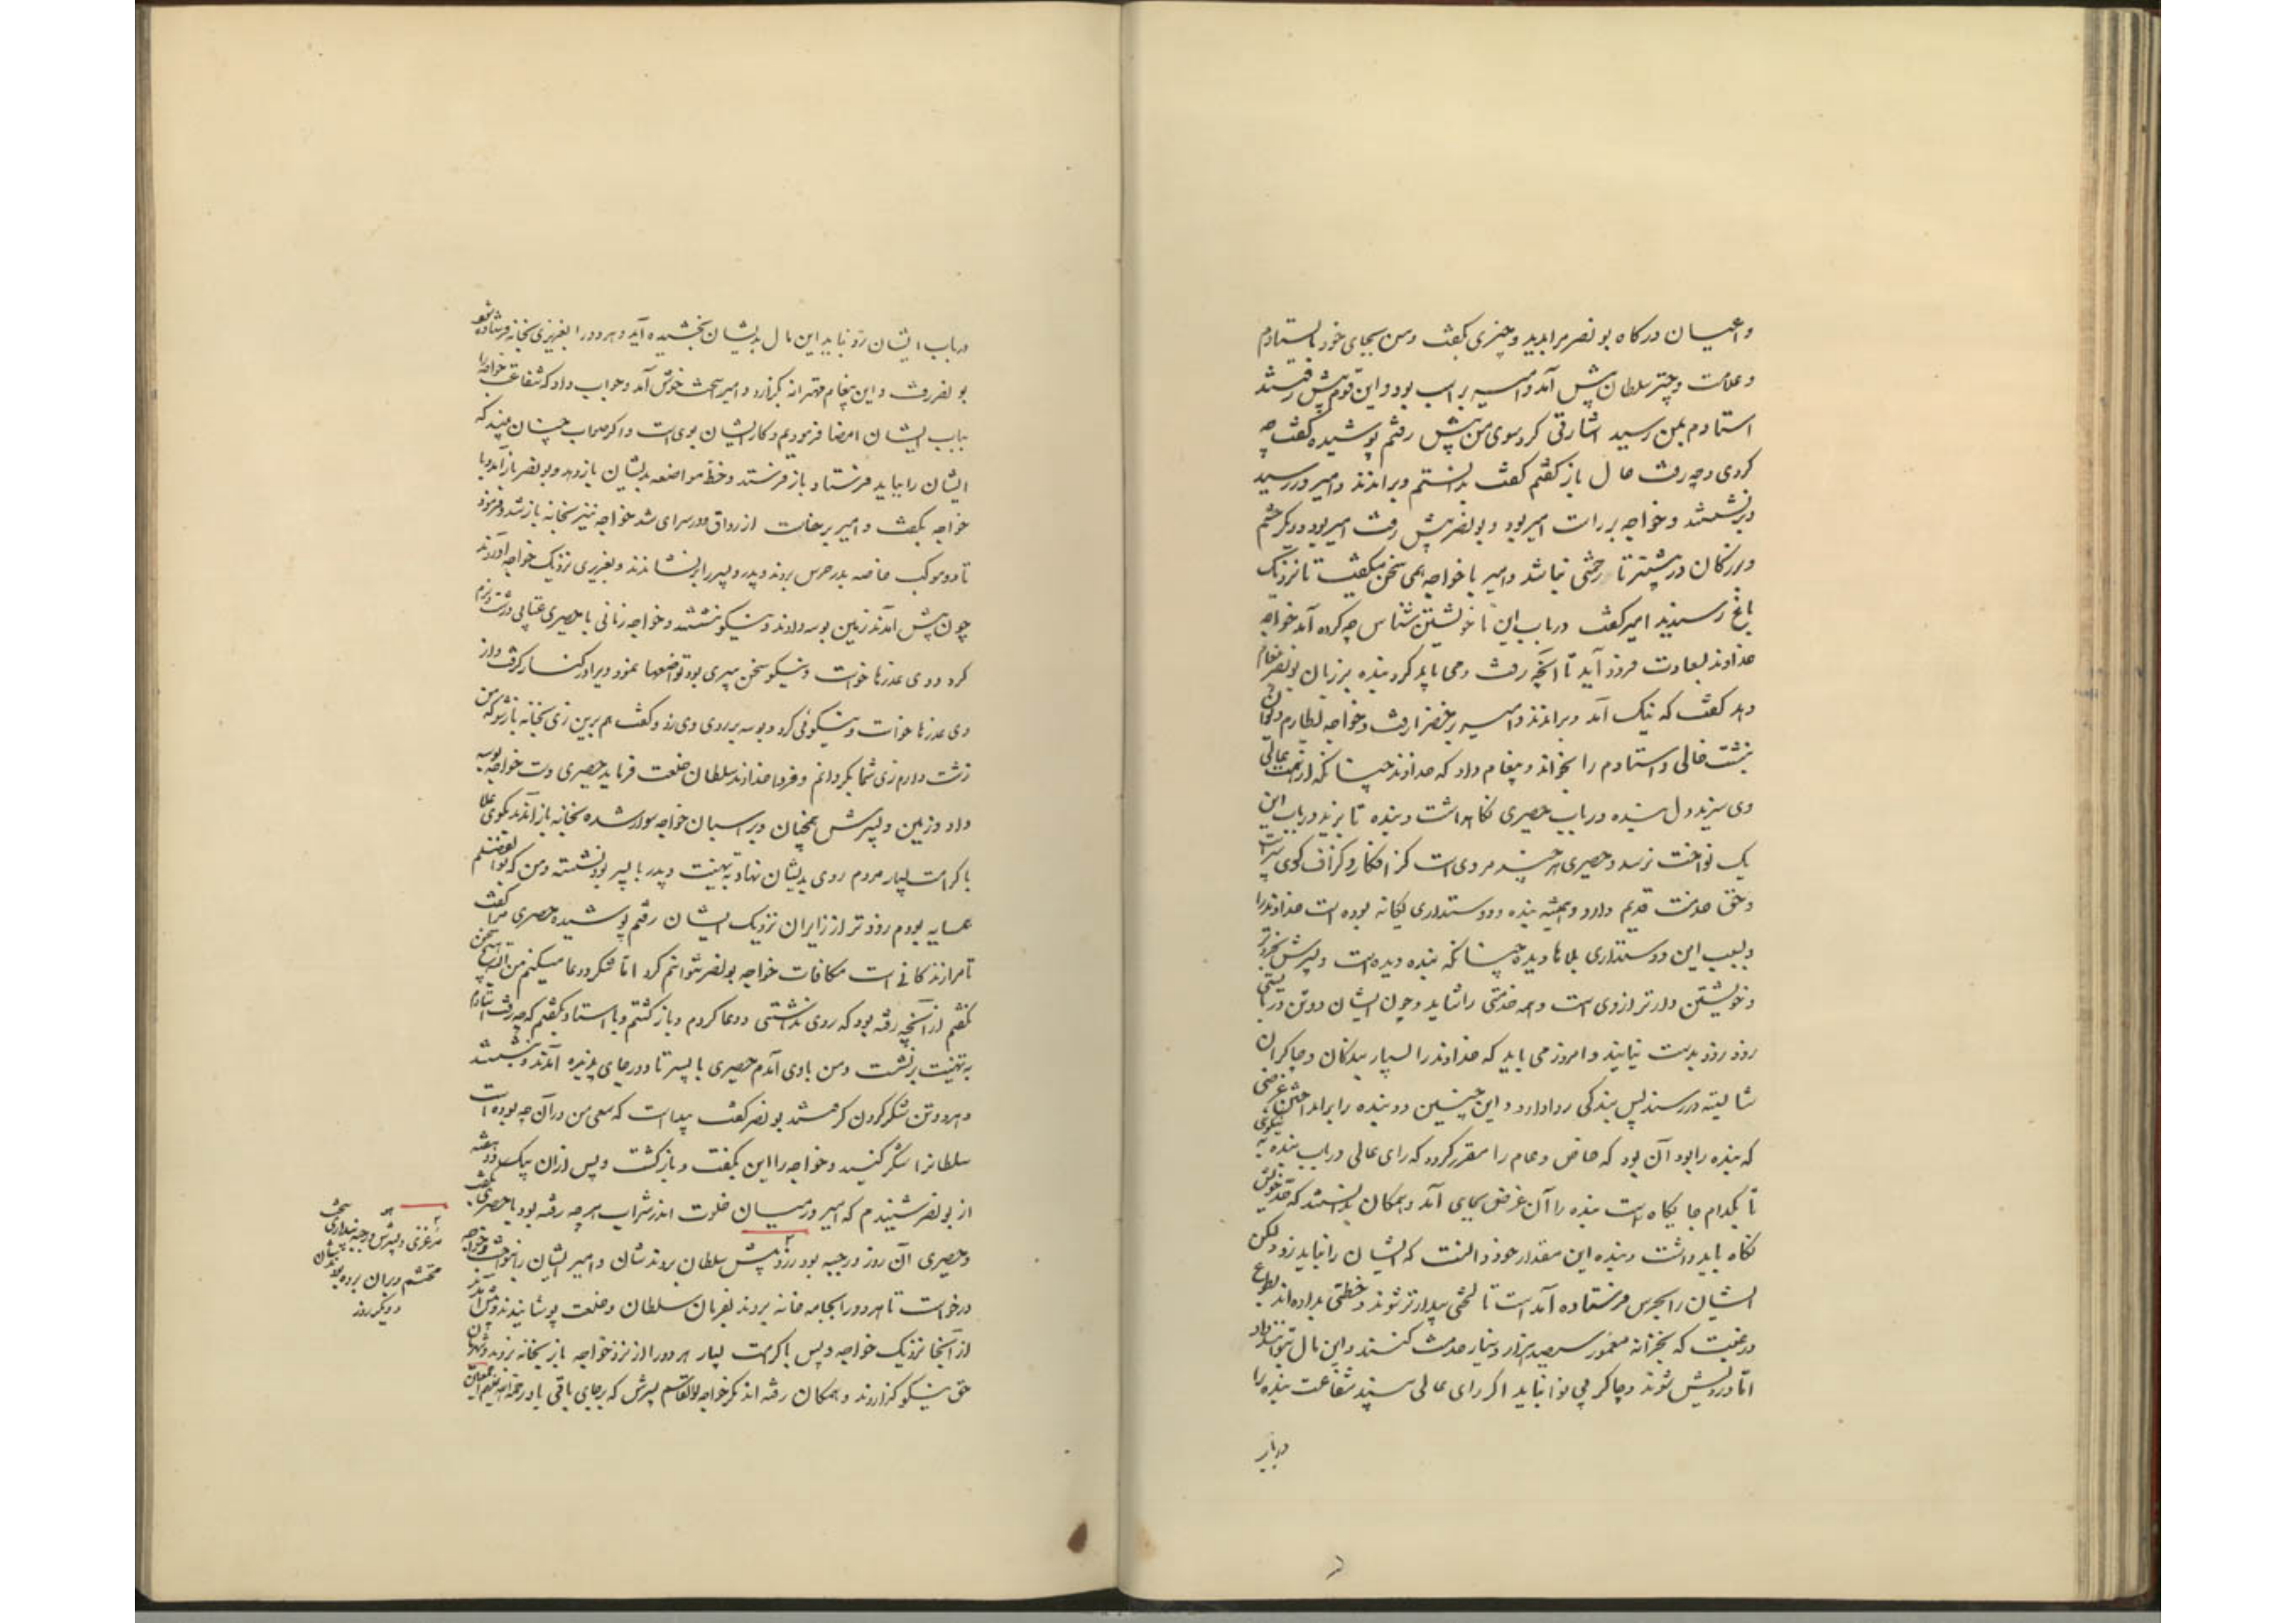 و اعیان درگاه بونصر مرا بدید و چیزی نگفت و من بجای خود بایستادم
و علامت و چتر سلطان پیش آمد و امیر بر اسب بود و این قوم پیش رفتند
استادم بمن رسید اشارتی کرد سوی من پیش رفتم پوشیده گفت چه
کردی و چه رفت حال باز گفتم گفت بدانستم و براندند و امیر در رسید
و برنشستند و خواجه بر راست امیر بود و بونصر پیش رفت امیر بود و دیگر حشم
و بزرگان در پیشتر تا زحمتی نباشد و امیر با خواجه همی سخن میگفت تا نزدیک
باغ رسیدند امیر گفت در باب این ناخویشتن شناس چه کرده آمد خواجه
خداوند بسعادت فرود آید تا آنچه رفت و می باید کرد بنده بر زبان بونصر پیغام
دهد گفت که نیک آمد و براندند و امیر بر خضرا رفت و خواجه بطارم دیوان
بنشست خالی و استادم را بخواند و پیغام داد که خداوند چنانکه از همت عالی
وی سزید دل بنده در باب حصیری نگاهداشت و بنده تا بزید در باب این
یک نواخت نرسد و حصیری هر چند مردی است گزافکار و گزاف گوی پیر است
و حق خدمت قدیم دارد و همیشه بنده و دوستداری یگانه بوده است خداوند را
و بسبب این دوستداری بلاها دیده چنانکه بنده دیده است و پسرش بخردتر
و خویشتن دارتر از وی است و همه خدمتی را شاید و چون ایشان دو تن در بایستنی
زود زود بدست نیایند و امروز می باید که خداوند را بسیار بندگان و چاکران
شایسته در رسند پس بندگی روا دارد و این چنین دو بنده را براند اختن غرضی
که بنده را بود آن بود که خاص و عام را مقرر گردد که رای عالی در باب بنده به نیکوی
تا بکدام جایگاه است بنده را آن غرض بجای آمد و همگان بدانستند که حد خویش
نگاه باید داشت و بنده این مقدار خود دانست که ایشان را نباید زد ولکن
ایشان را بحرس فرستاده آمد است تا لختی بیدارتر شوند و خطی بداده اند بطوع
و رغبت که بخزانه معمور سیصد هزار دینار خدمت کنند و این مال بتوانند داد
اما درویش شوند و چاکر بی نوا نباید اگر رای عالی بیند شفاعت بنده را
در باب
در باب ایشان رد نباید این مال بدیشان بخشیده آید و هر دو را بعزیزی بخانه فرستاده شود
بونصر رفت و این پیغام مهترانه بگزارد و امیر سخت خوش آمد و جواب داد که شفاعت خواجه را
بباب ایشان امضا فرمودیم و کار ایشان بوی است و اگر صواب چنان بیند که
ایشان را بباید فرستاد باز فرستد و خط مواضعه بدیشان باز دهد و بونصر باز آمد و با
خواجه بگفت و امیر برخاست از رواق و در سرای شد خواجه نیز بخانه باز شد و فرمود
تا دو موکب خاصه بدر حرس بردند و پدر و پسر را برنشاندند و بعزیزی نزدیک خواجه آوردند
چون پیش آمدند زمین بوسه دادند و نیکو نشستند و خواجه زمانی با حصیری عتابی درشت و نرم
کرد و وی عذرها خواست و نیکو سخن پیری بود تواضعها نمود و ویرا در کنار گرفت و از
وی عذرها خواست و نیکوئی کرد و بوسه بر روی وی زد و گفت هم برین زی بخانه باز شو که من
زشت دارم زی شما بگردانم و فردا خداوند سلطان خلعت فرماید حصیری دست خواجه بوسه
داد و زمین و پسرش همچنان و بر اسبان خواجه سوار شده بخانه باز آمدند بکوی علا
با کرامت بسیار مردم روی بدیشان نهاد به تهنیت و پدر با پسر بود نشسته و من که بوالفضلم
همسایه بودم زودتر از زایران نزدیک ایشان رفتم پوشیده حصیری مرا گفت
تا مرا زندگانی است مکافات خواجه بونصر نتوانم کرد اما شکر و دعا میکنم من البته هیچ سخن
نگفتم از آنچه رفته بود که روی نداشتی و دعا کردم و باز گشتم و با استاد بگفتم که چه رفت استادم
به تهنیت برنشست و من با وی آمدم حصیری با پسر تا دور جای پذیره آمدند و بنشستند
و هر دو تن شکر کردن گرفتند بونصر گفت پیداست که سعی من در آن چه بوده است
سلطانرا شکر کنید و خواجه را این بگفت و باز گشت و پس از آن بیک دو هفته
از بونصر شنیدم که امیر در میان خلوت اندر شراب هر چه رفته بود با حصیری بگفت
و حصیری آن روز در جبه بود زرد پیش سلطان بردندشان و امیر ایشان را بنواخت و خواجه
درخواست تا هر دو را بجامه خانه بردند بفرمان سلطان و خلعت پوشانیدند و پیش آمدند
از آنجا نزدیک خواجه و پس با کرامت بسیار هر دو را از نزد خواجه باز بخانه بردند و شهریان
حق نیکو گزاردند و همگان رفته اند مگر خواجه بوالقاسم پسرش که بر جای باقی باد رحمة الله علیهم اجمعین
مرغزی و پسرش در جبه بنداری سخت
محتشم و بران برده بودند
و دیگر روز